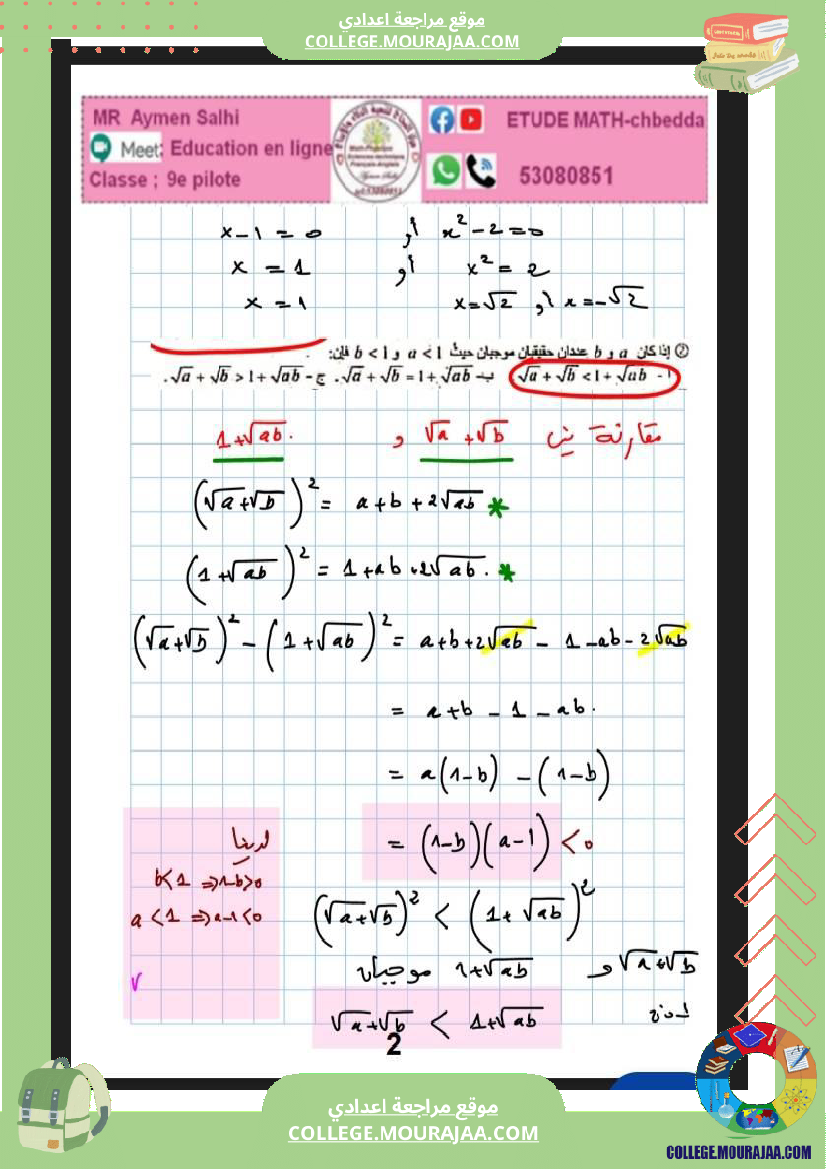 موقع مراجعة اعدادي
COLLEGE.MOURAJAA.COM
MR Aymen Salhi
Meet: Education en ligne
Classe ; 9e pilote
ETUDE MATH-chbedda
53080851
x-1 = 0 أو x² - 2 = 0
x = 1 أو x² = 2
x = 1 x = √2 أو x = -√2
② إذا كان a و b عددان حقيقيان موجبان حيث a < 1 و b < 1 فإن:
أ- √a + √b < 1 + √ab ب- √a + √b = 1 + √ab. ج- √a + √b > 1 + √ab.
مقارنة بين √a + √b و 1+√ab.
(√a+√b)² = a+b+2√ab *
(1+√ab)² = 1+ab+2√ab. *
(√a+√b)² - (1+√ab)² = a+b+2√ab - 1 - ab - 2√ab
= a+b - 1 - ab.
= a(1-b) - (1-b)
= (1-b)(a-1) < 0
لدينا
b<1 ⇒ 1-b>0
a<1 ⇒ a-1<0
(√a+√b)² < (1+√ab)²
√a+√b و 1+√ab موجبان
√a+√b < 1+√ab
2
موقع مراجعة اعدادي
COLLEGE.MOURAJAA.COM
COLLEGE.MOURAJAA.COM